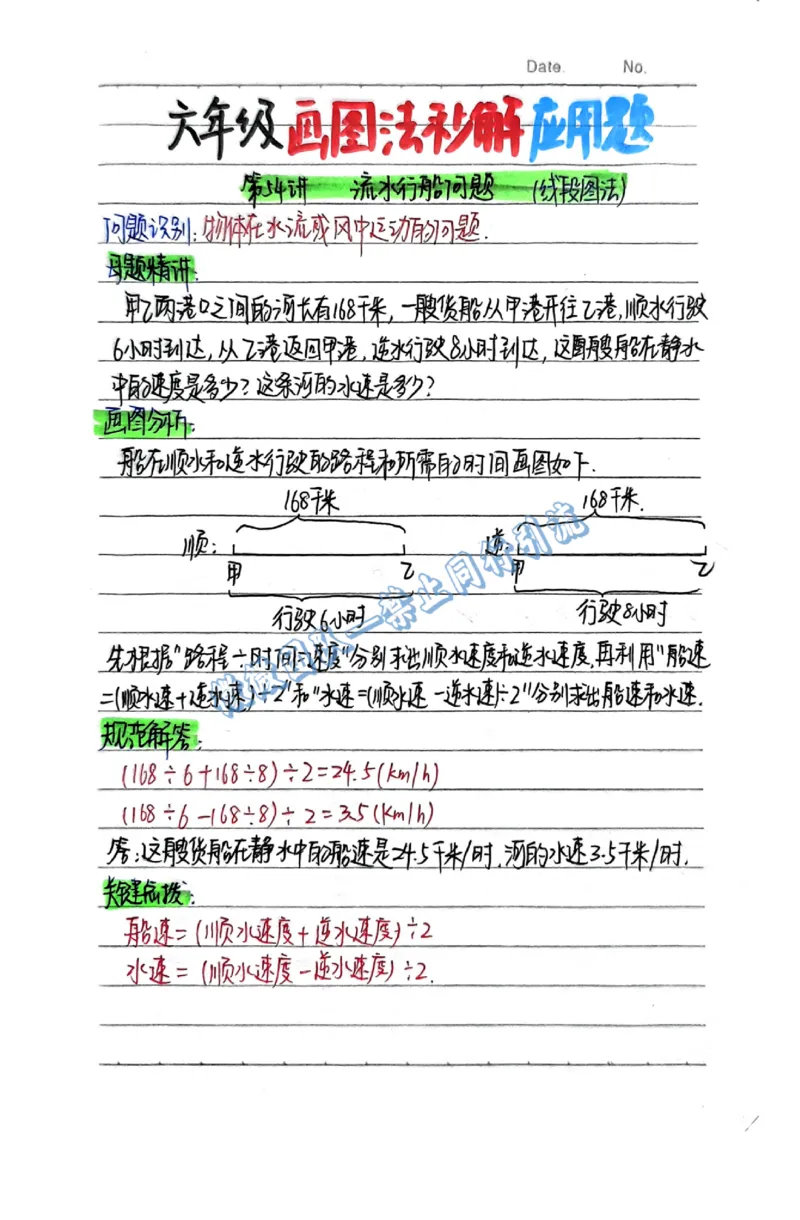 Date. No.
六年级画图法秒解应用题
第54讲 流水行船问题 (线段图法)
问题识别:物体在水流或风中运动的问题.
母题精讲:
甲乙两港口之间的河长有168千米,一艘货船从甲港开往乙港,顺水行驶
6小时到达,从乙港返回甲港,逆水行驶8小时到达,这艘船在静水
中的速度是多少?这条河的水速是多少?
画图分析:
船在顺水和逆水行驶的路程和所需的时间画图如下.
168千米 168千米.
顺: 逆:
甲 乙 甲 乙
行驶6小时 行驶8小时
先根据"路程÷时间=速度"分别求出顺水速度和逆水速度,再利用"船速
=(顺水速+逆水速)÷2"和"水速=(顺水速-逆水速)÷2"分别求出船速和水速.
规范解答:
(168÷6+168÷8)÷2=24.5(km/h)
(168÷6-168÷8)÷2=3.5(km/h)
答:这艘货船在静水中的船速是24.5千米/时,河的水速3.5千米/时.
关键点拨:
船速=(顺水速度+逆水速度)÷2
水速=(顺水速度-逆水速度)÷2.
禁止同行引流